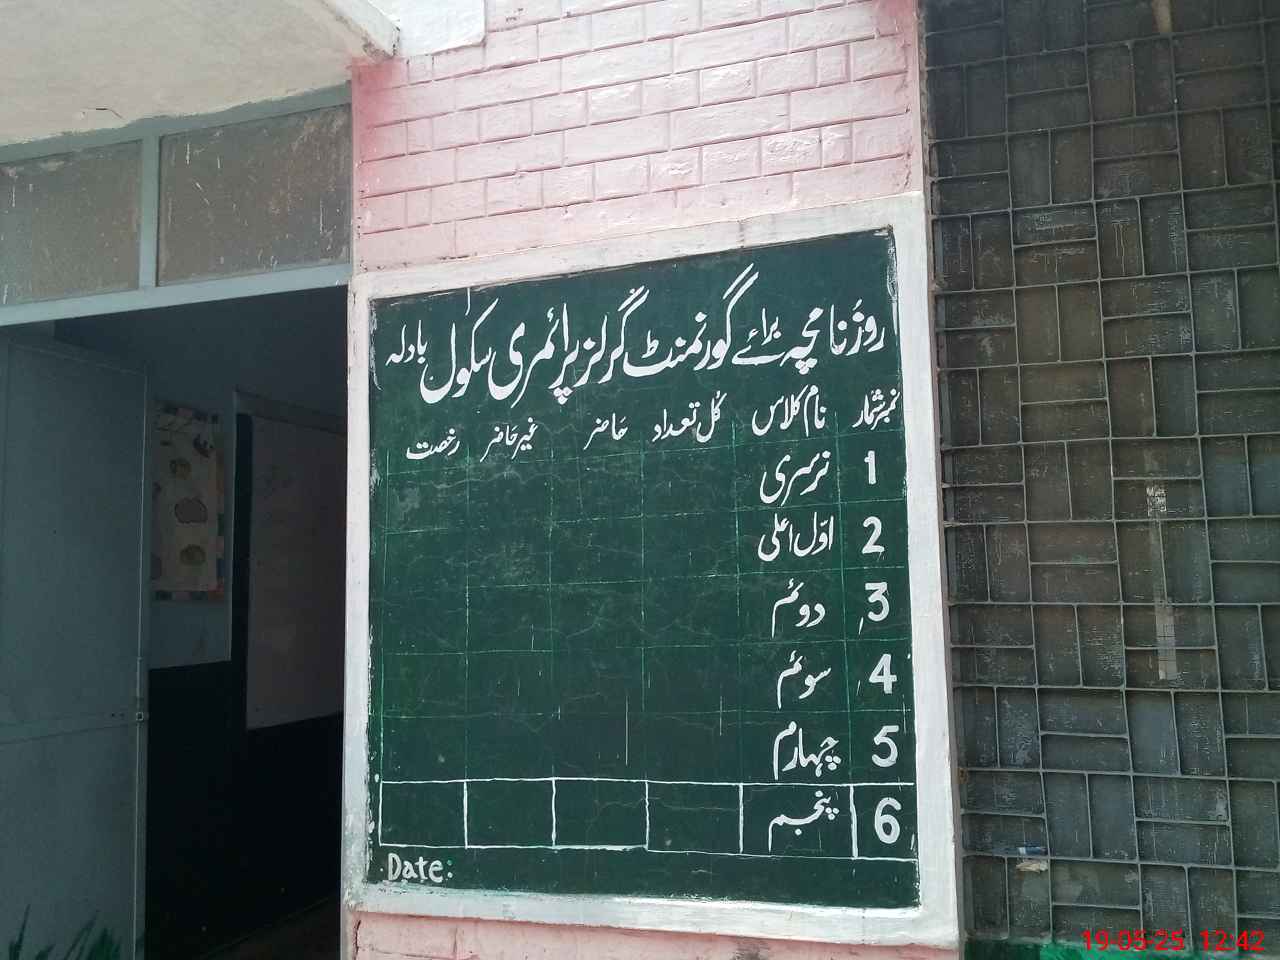 روزنامچہ برائے گورنمنٹ گرلز پرائمری سکول بادلہ
نمبرشمار نام کلاس کُل تعداد حاضر غیر حاضر رخصت
1 نرسری
2 اوّل اعلی
3 دوئم
4 سوئم
5 چہارم
6 پنجم
Date:
19-05-25 12:42